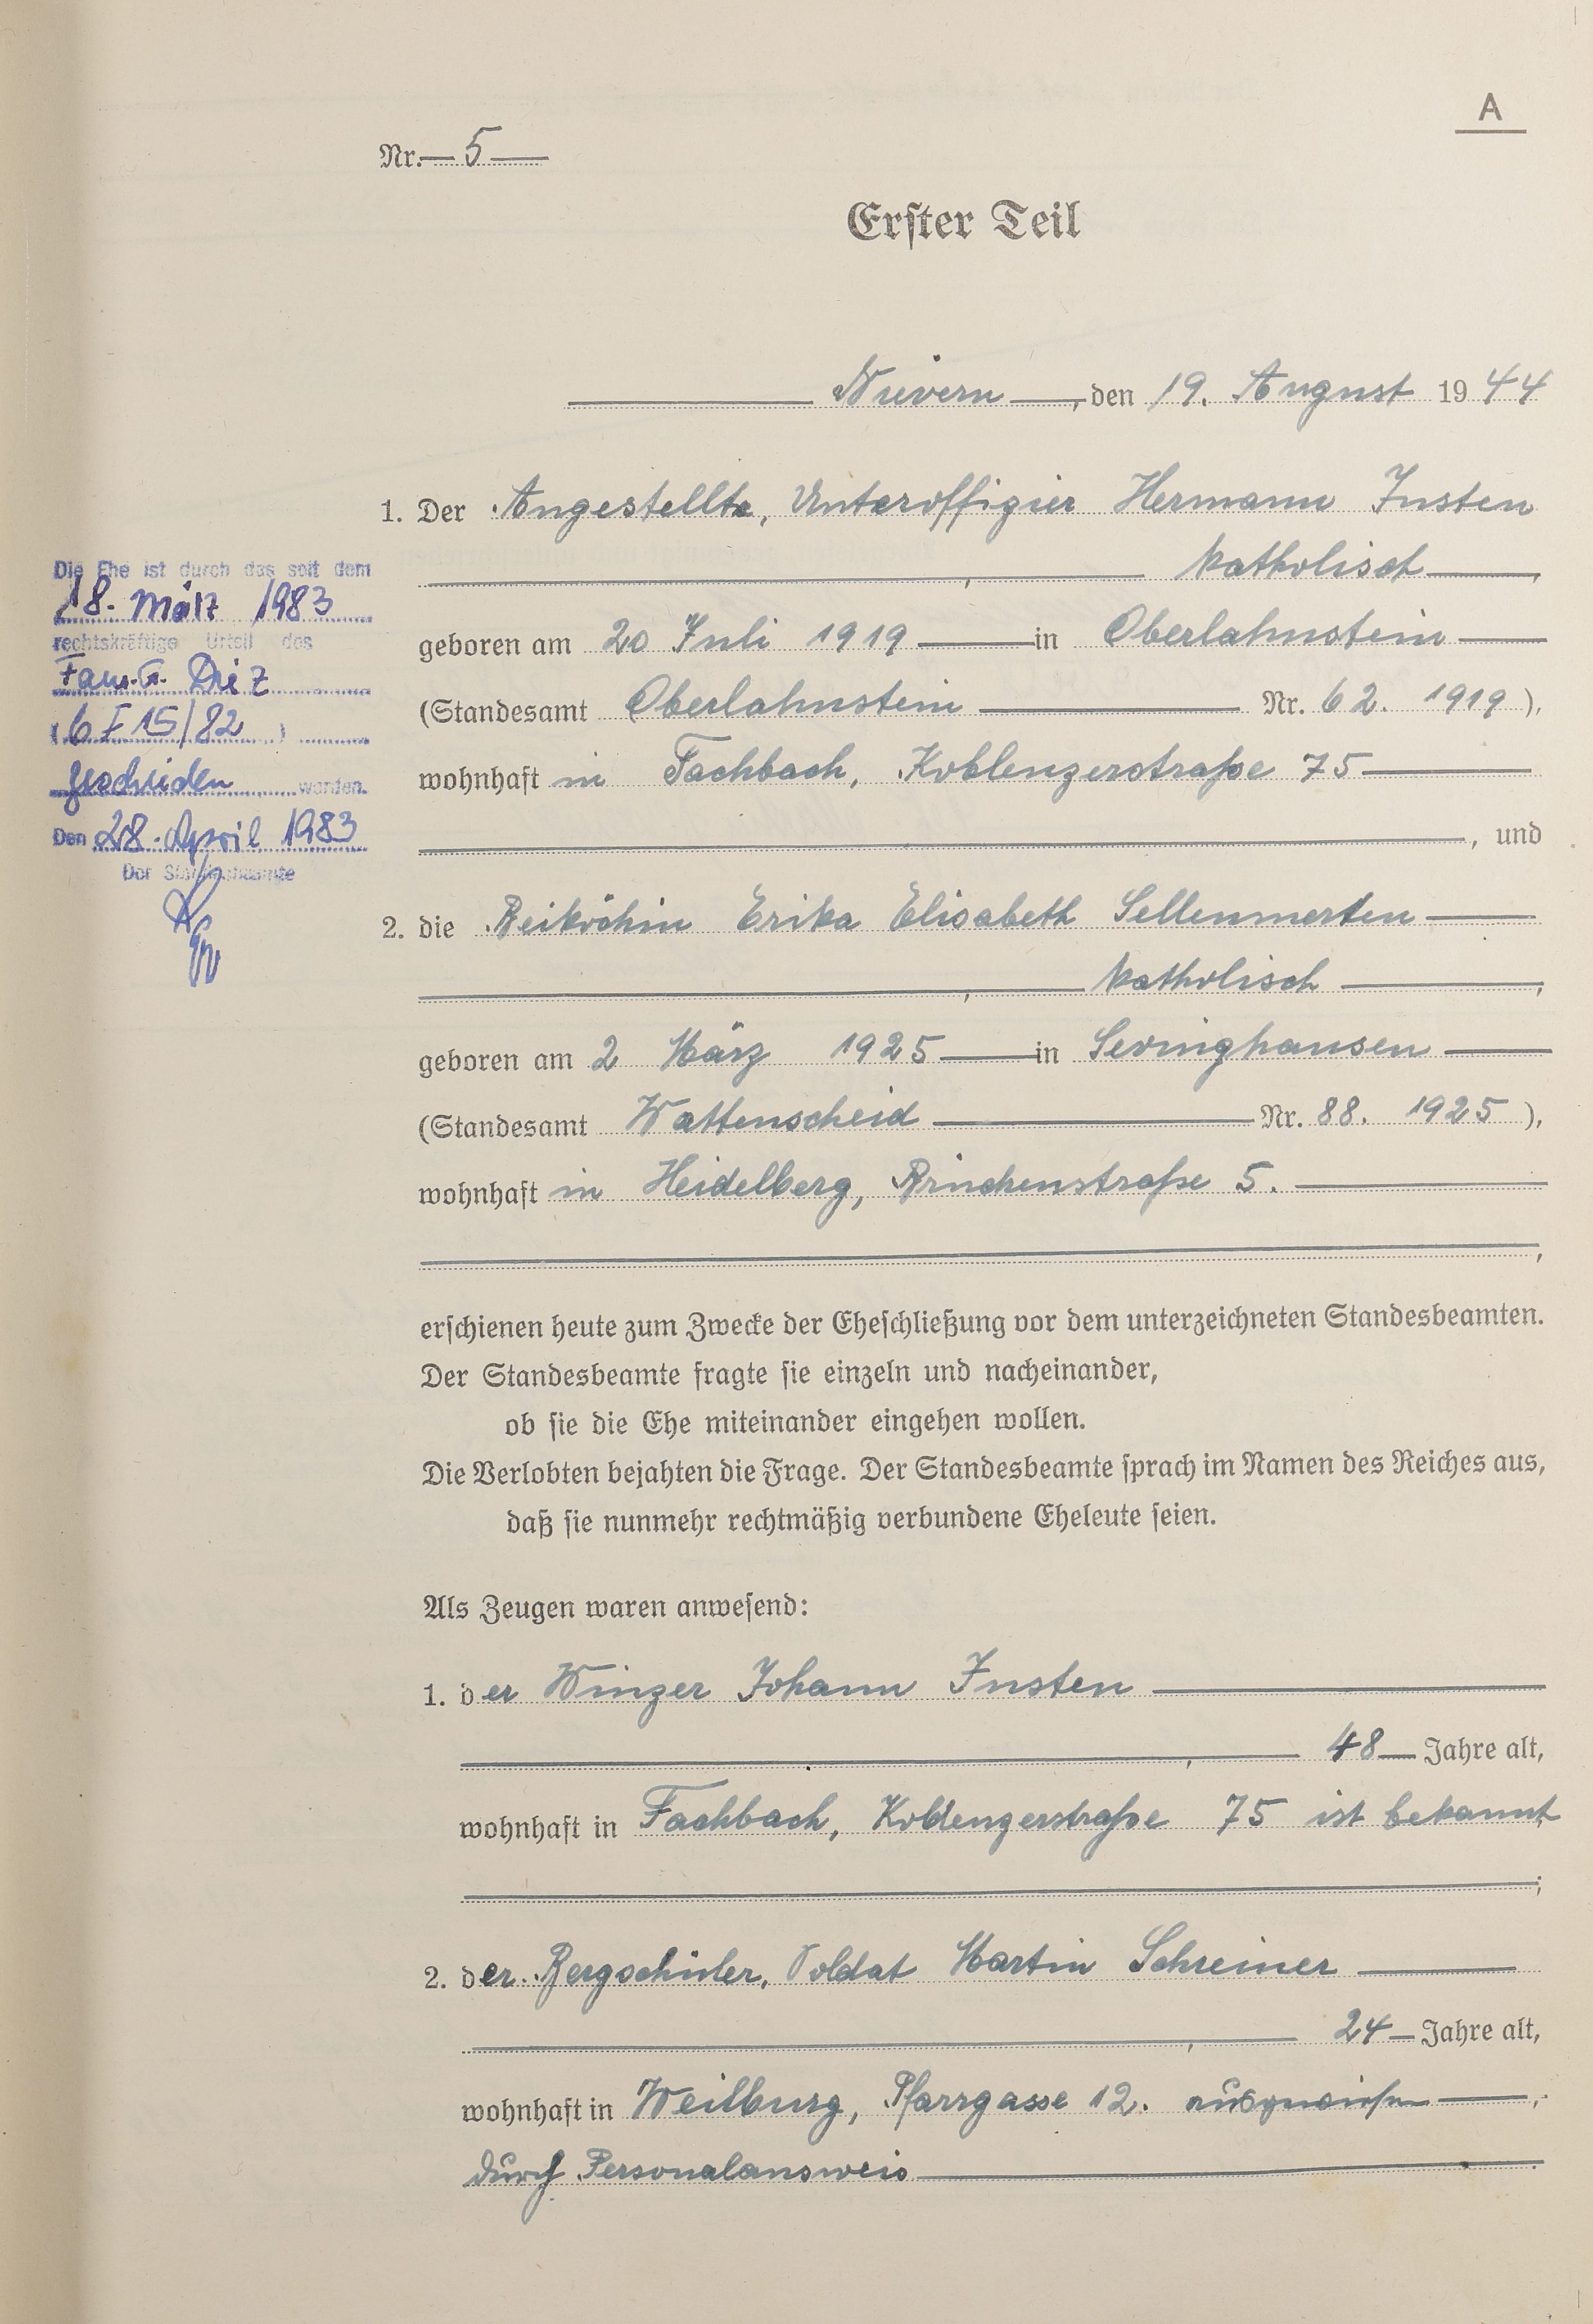 A
Nr. 5
Erster Teil
Nievern, den 19. August 1944
1. Der Angestellte, Unteroffizier Hermann Justen
, katholisch,
geboren am 20 Juli 1919 in Oberlahnstein
(Standesamt Oberlahnstein Nr. 62. 1919),
wohnhaft in Fachbach, Koblenzerstraße 75
, und
2. die Beiköchin Erika Elisabeth Sellenmerten
, katholisch,
geboren am 2 März 1925 in Sevinghausen
(Standesamt Wattenscheid Nr. 88. 1925),
wohnhaft in Heidelberg, 5.
erschienen heute zum Zwecke der Eheschließung vor dem unterzeichneten Standesbeamten.
Der Standesbeamte fragte sie einzeln und nacheinander,
ob sie die Ehe miteinander eingehen wollen.
Die Verlobten bejahten die Frage. Der Standesbeamte sprach im Namen des Reiches aus,
daß sie nunmehr rechtmäßig verbundene Eheleute seien.
Als Zeugen waren anwesend:
1. der Winzer Johann Justen
, 48 Jahre alt,
wohnhaft in Fachbach, Koblenzerstraße 75 ist bekannt
;
2. der Bergschüler, Soldat Martin Schreiner
, 24 Jahre alt,
wohnhaft in Weilburg, Pfarrgasse 12. ausgewiesen,
durch Personalausweis.
Die Ehe ist durch das seit dem
18. März 1983
rechtskräftige Urteil des
Fam.G. Diez
(6 F 15/82)
geschieden worden.
Den 28. April 1983
Der Standesbeamte